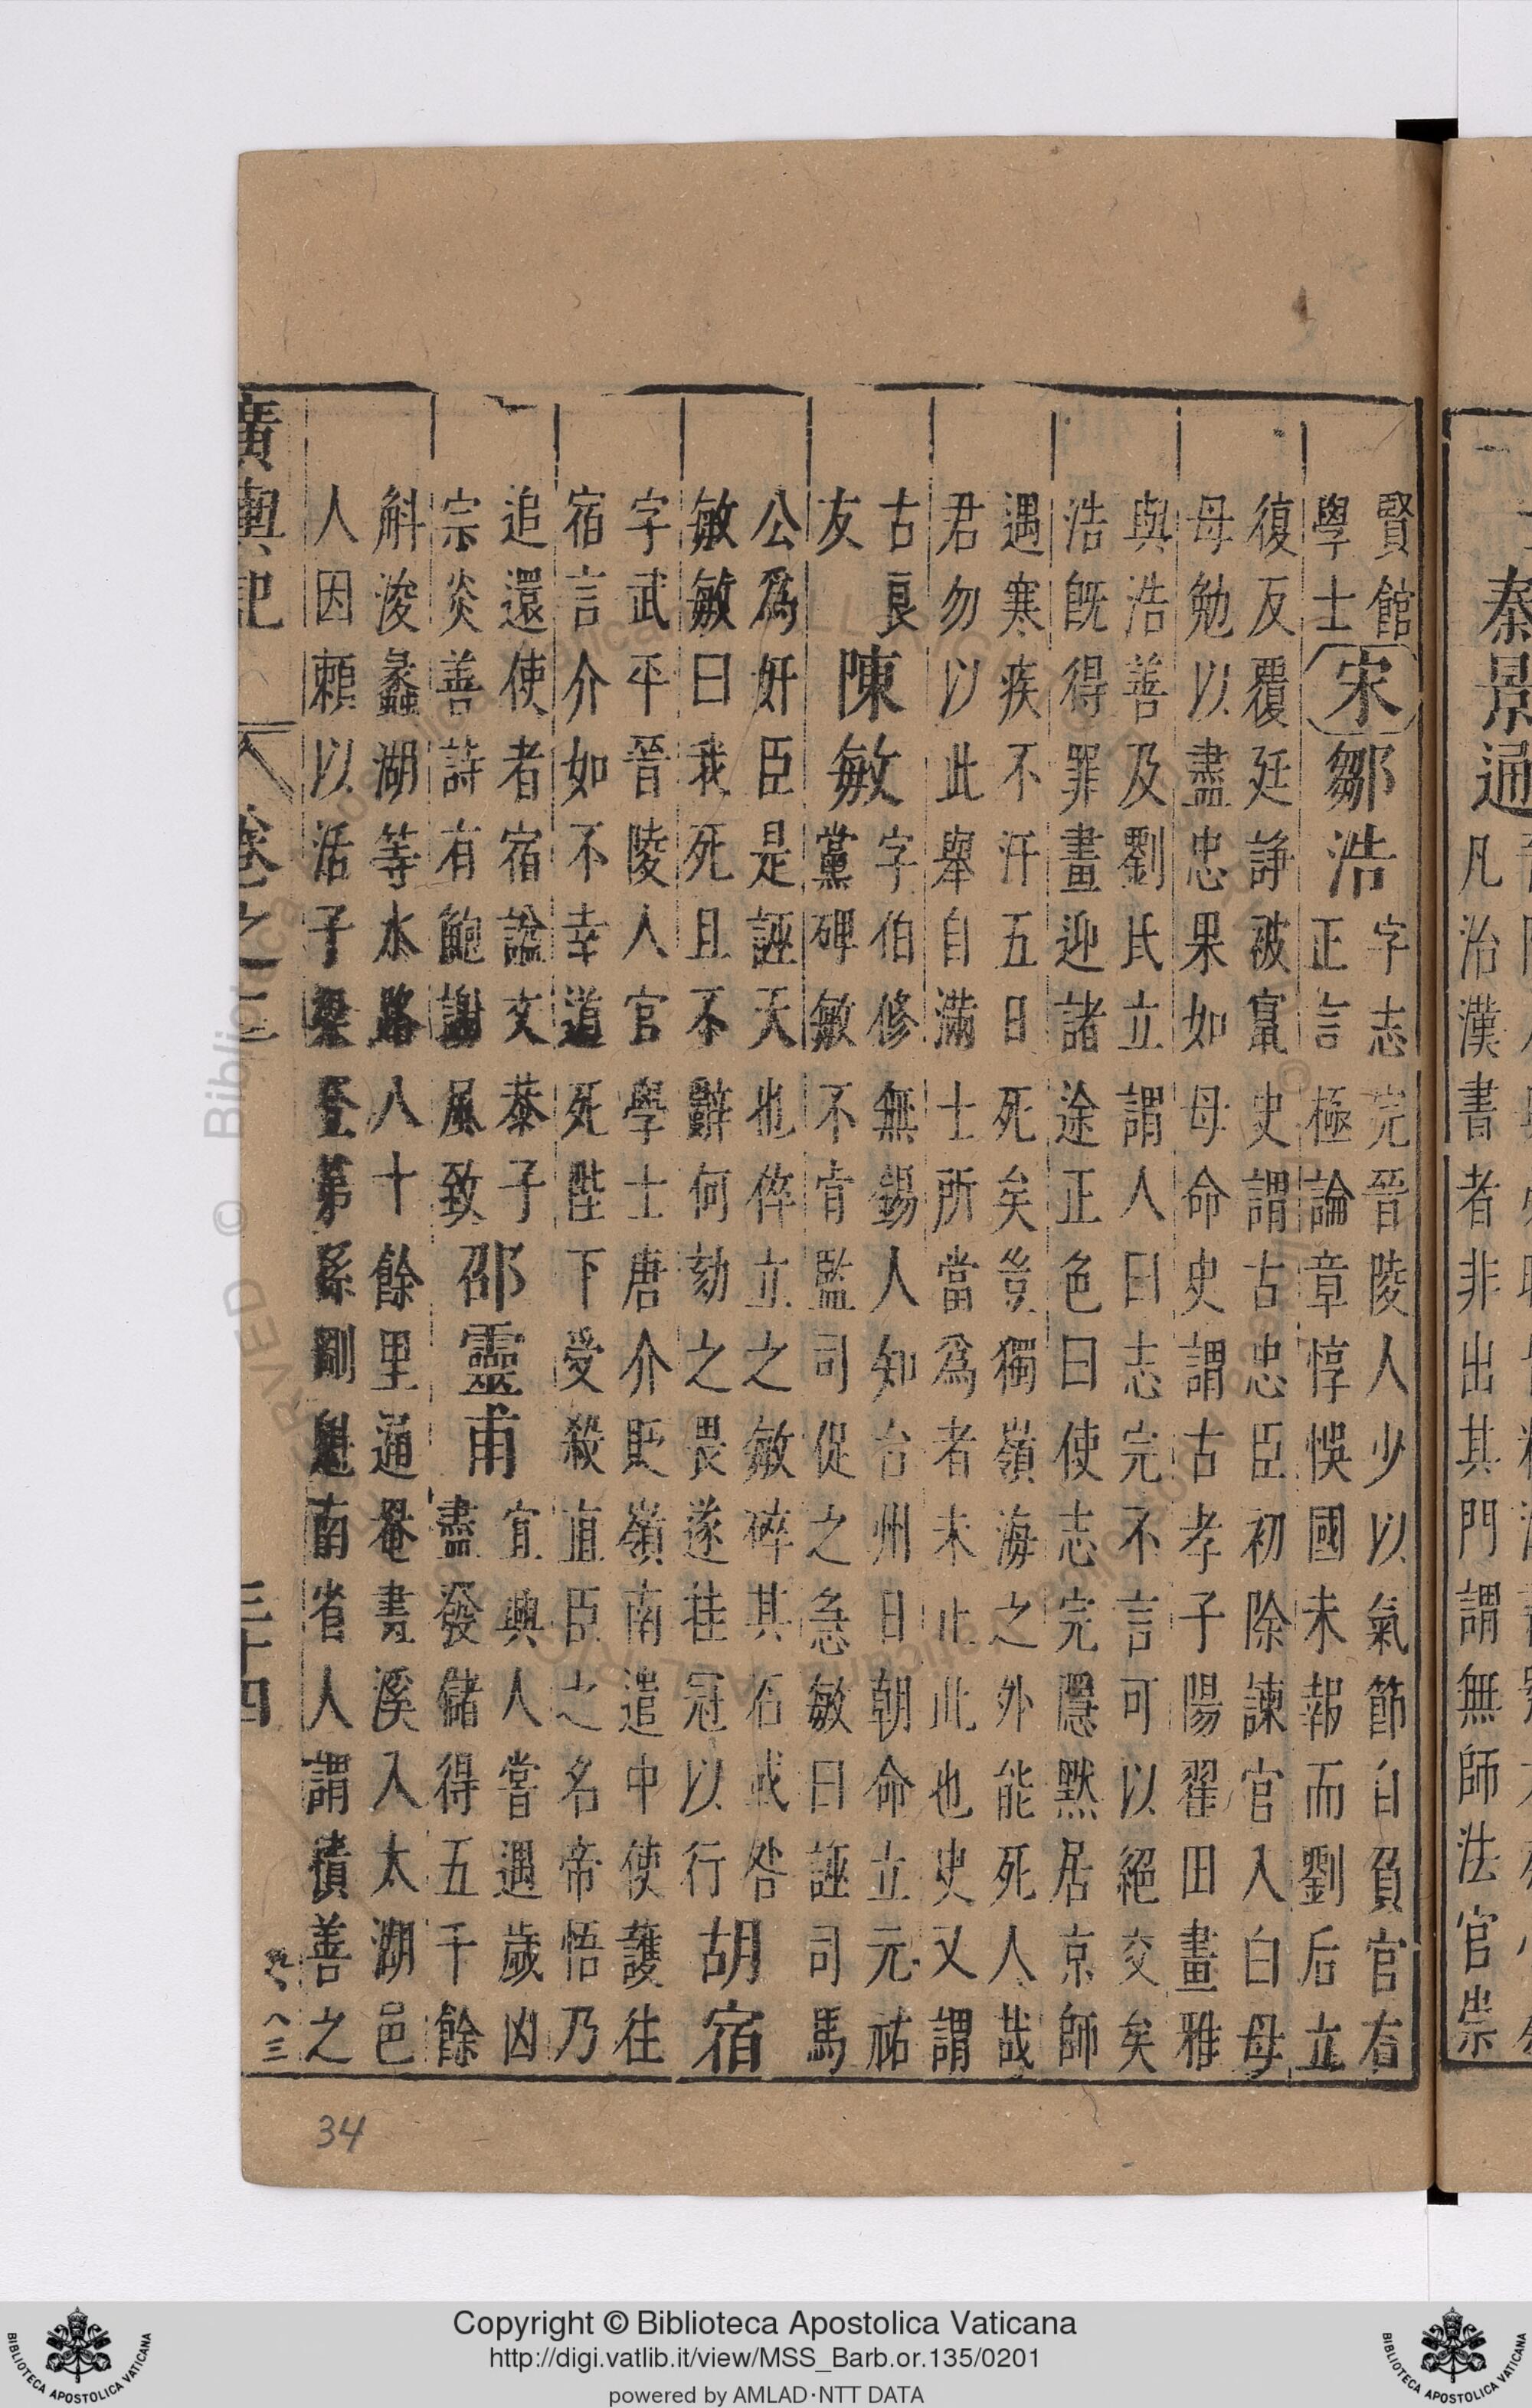 秦景通
凡治漢書者非出其門謂無師法官崇
賢館
學士
宋鄒浩
字志完晉陵人少以氣節自負官右
正言極論章惇悞國未報而劉后立
復反覆延諍被竄史謂古忠臣初除諫官入白母
母勉以盡忠果如母命史謂古孝子陽翟田畫雅
與浩善及劉氏立謂人曰志完不言可以絕交矣
浩旣得罪畫迎諸途正色曰使志完隱默居京師
遇寒疾不汗五日死矣豈獨嶺海之外能死人哉
君勿以此舉自滿士所當爲者未止此也史又謂
古良
友
陳敏
字伯修無錫人知台州日朝命立元祐
黨碑敏不肯監司促之急敏曰誣司馬
公爲奸臣是誣天也倅立之敏碎其石或咎
敏敏曰我死且不辭何劾之畏遂挂冠以行
胡宿
字武平晉陵人官學士唐介貶嶺南遣中使護往
宿言介如不幸道死陛下受殺直臣之名帝悟乃
追還使者宿諡文恭子
宗炎善詩有鮑謝風致
邵靈甫
宜興人嘗遇歲凶
盡發儲得五千餘
斛浚蠡湖等水路八十餘里通罨畫溪入太湖邑
人因賴以活子梁登第孫剛魁南省人謂積善之
廣輿記
卷之三
三十四
八三
34
© Biblioteca Apostolica Vaticana
Copyright © Biblioteca Apostolica Vaticana
http://digi.vatlib.it/view/MSS_Barb.or.135/0201
powered by AMLAD·NTT DATA
BIBLIOTECA APOSTOLICA VATICANA
BIBLIOTECA APOSTOLICA VATICANA